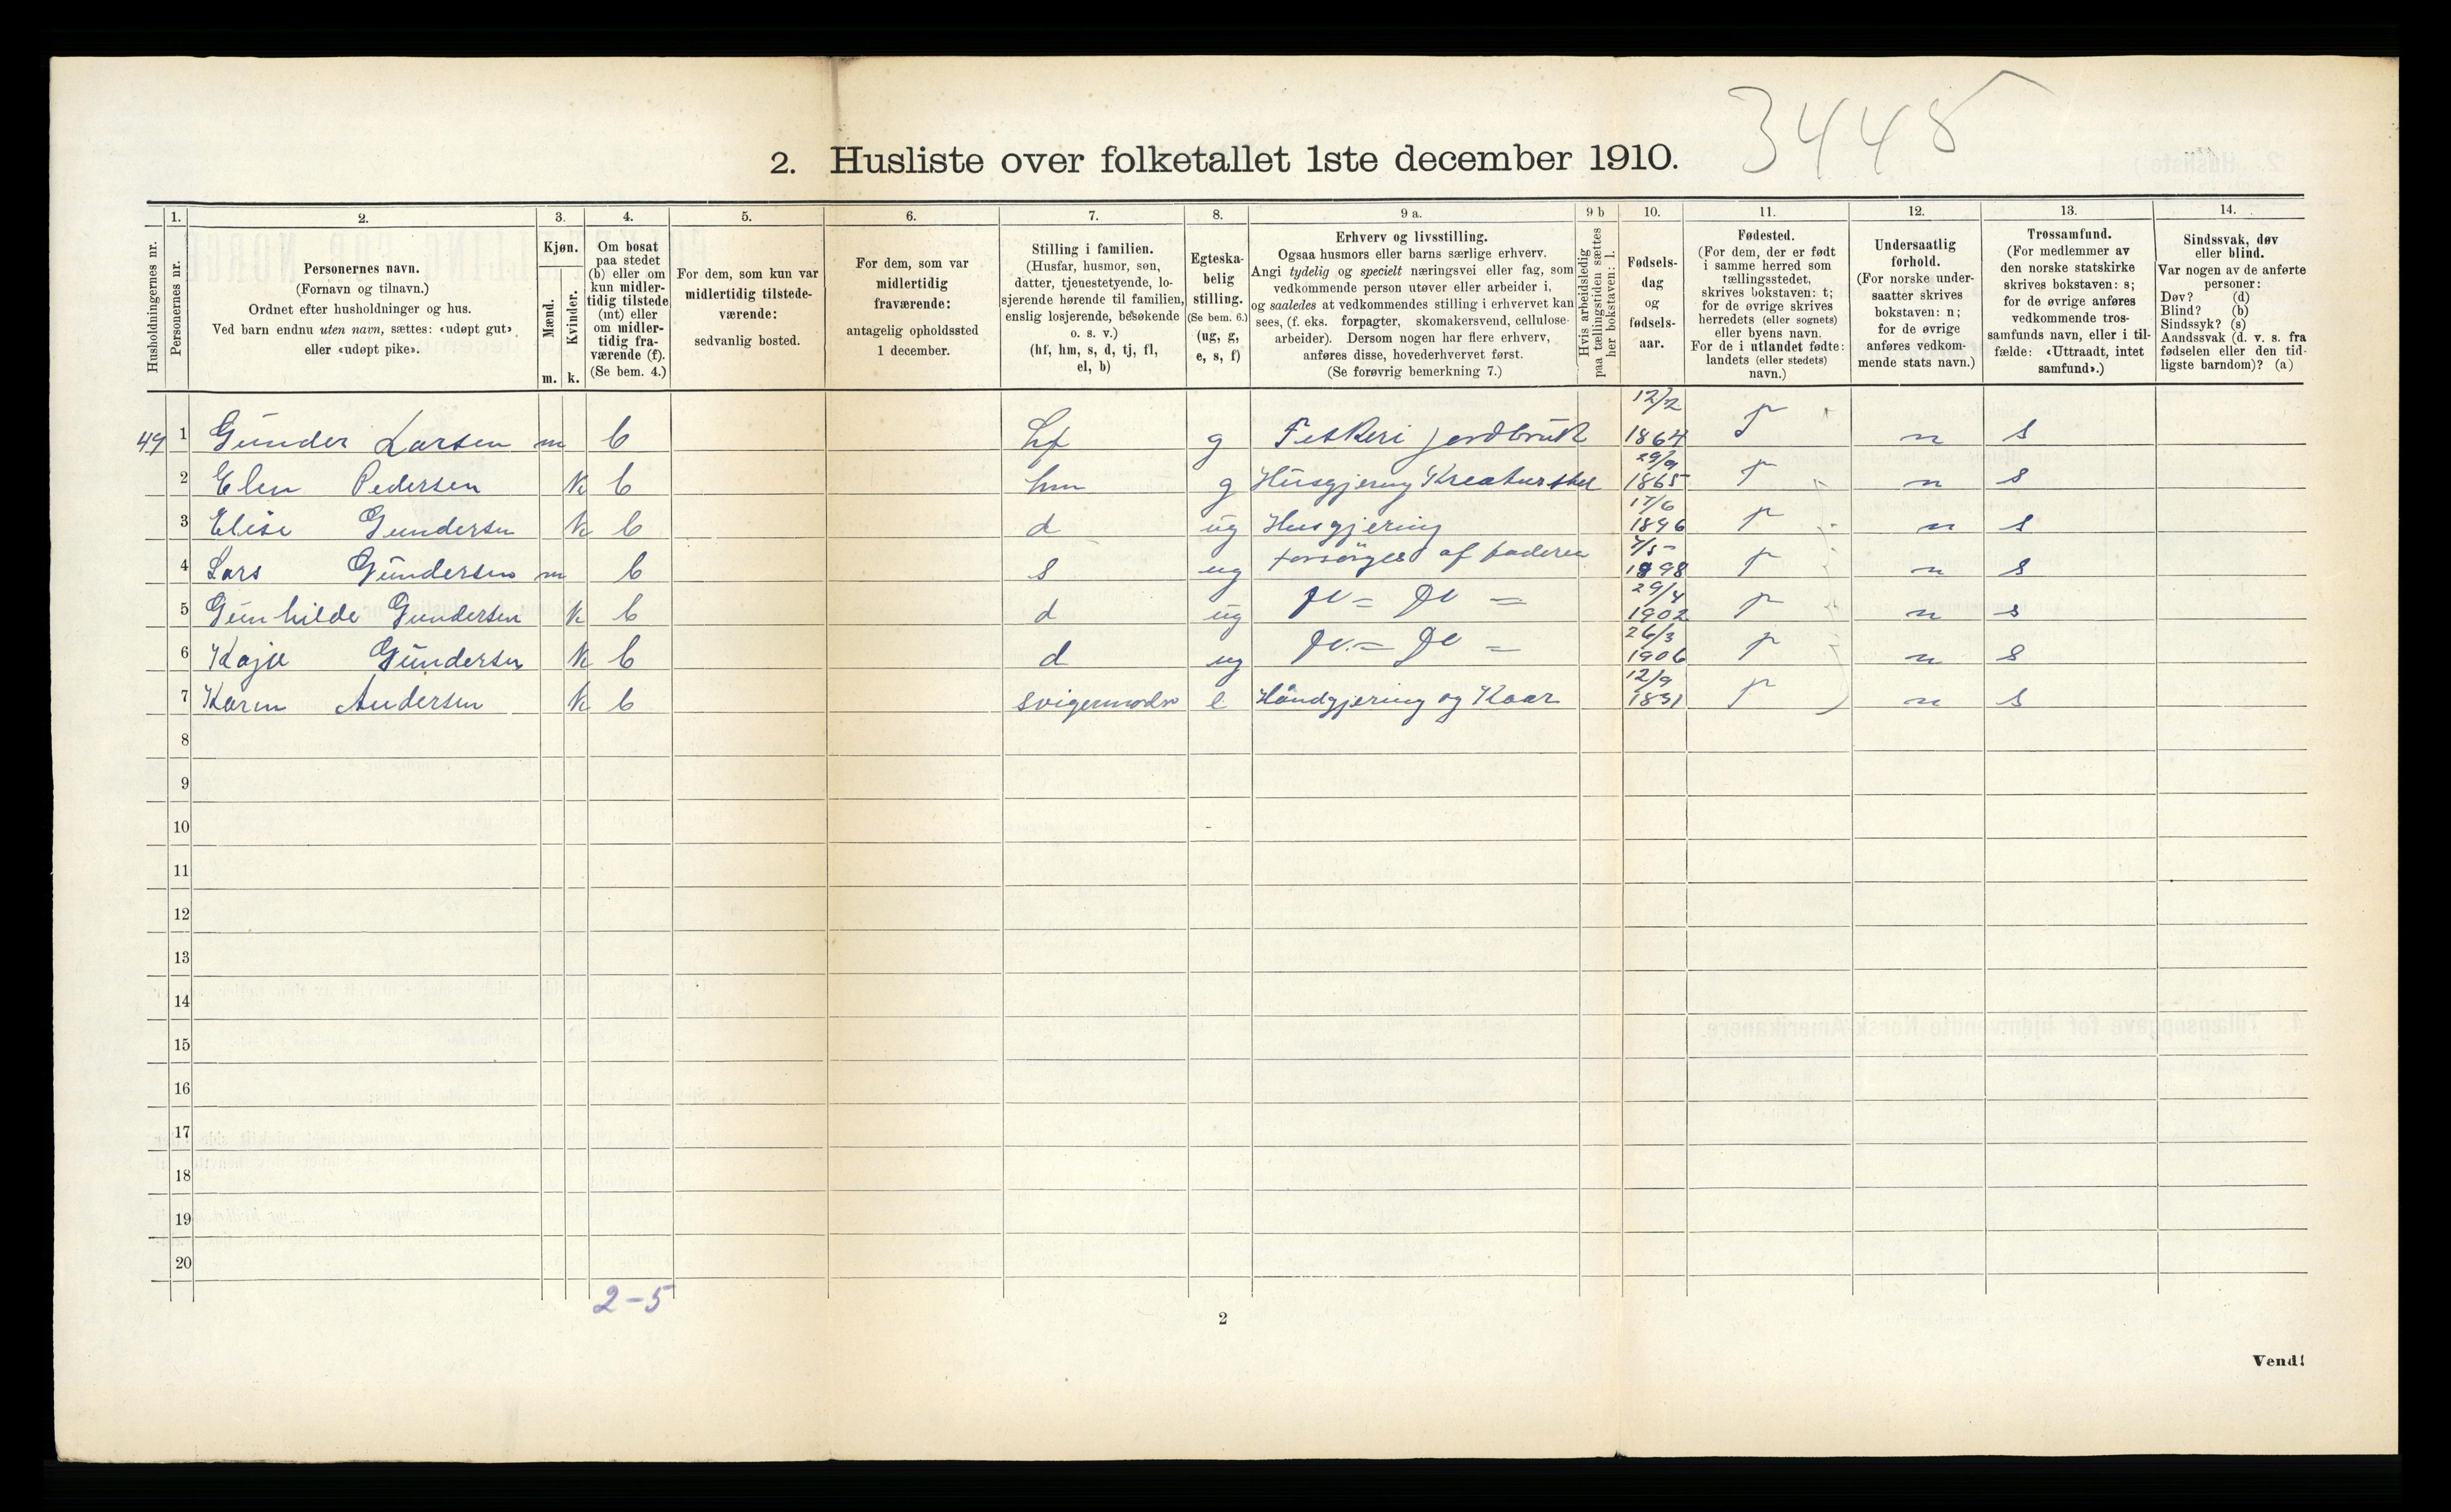 3448
2. Husliste over folketallet 1ste december 1910.
Husholdningernes nr.
1.
Personernes nr.
2.
Personernes navn.
(Fornavn og tilnavn.)
Ordnet efter husholdninger og hus.
Ved barn endnu uten navn, sættes: «udøpt gut»
eller «udøpt pike».
3.
Kjøn.
Mænd.
Kvinder.
m. k.
4.
Om bosat
paa stedet
(b) eller om
kun midler-
tidig tilstede
(mt) eller
om midler-
tidig fra-
værende (f).
(Se bem. 4.)
5.
For dem, som kun var
midlertidig tilstede-
værende:
sedvanlig bosted.
6.
For dem, som var
midlertidig
fraværende:
antagelig opholdssted
1 december.
7.
Stilling i familien.
(Husfar, husmor, søn,
datter, tjenestetyende, lo-
sjerende hørende til familien,
enslig losjerende, besøkende
o. s. v.)
(hf, hm, s, d, tj, fl,
el, b)
8.
Egteska-
belig
stilling.
(Se bem. 6.)
(ug, g,
e, s, f)
9 a.
Erhverv og livsstilling.
Ogsaa husmors eller barns særlige erhverv.
Angi tydelig og specielt næringsvei eller fag, som
vedkommende person utøver eller arbeider i,
og saaledes at vedkommendes stilling i erhvervet kan
sees, (f. eks. forpagter, skomakersvend, cellulose-
arbeider). Dersom nogen har flere erhverv,
anføres disse, hovederhvervet først.
(Se forøvrig bemerkning 7.)
9 b
Hvis arbeidsledig
paa tællingstiden sættes
her bokstaven: l.
10.
Fødsels-
dag
og
fødsels-
aar.
11.
Fødested.
(For dem, der er født
i samme herred som
tællingsstedet,
skrives bokstaven: t;
for de øvrige skrives
herredets (eller sognets)
eller byens navn.
For de i utlandet fødte:
landets (eller stedets)
navn.)
12.
Undersaatlig
forhold.
(For norske under-
saatter skrives
bokstaven: n;
for de øvrige
anføres vedkom-
mende stats navn.)
13.
Trossamfund.
(For medlemmer av
den norske statskirke
skrives bokstaven: s;
for de øvrige anføres
vedkommende tros-
samfunds navn, eller i til-
fælde: «Uttraadt, intet
samfund».)
14.
Sindssvak, døv
eller blind.
Var nogen av de anførte
personer:
Døv? (d)
Blind? (b)
Sindssyk? (s)
Aandssvak (d. v. s. fra
fødselen eller den tid-
ligste barndom)? (a)
1 Gunder Larsen m b hf g Feskeri jordbruk 12/2 1864 T n s
2 Elen Pedersen k b hm g Husgjering Kreaturstel 29/9 1865 T n s
3 Elise Gundersen k b d ug Husgjering 17/6 1896 T n s
4 Lars Gundersen m b s ug forsørges af faderen 7/5 1898 T n s
5 Gunhilde Gundersen k b d ug Do = Do = 29/4 1902 T n s
6 Kaja Gundersen k b d ug Do = Do = 26/3 1906 T n s
7 Karen Andersen k b svigermoder e Håndgjering og Kaar 12/9 1831 T n s
8
9
10
11
12
13
14
15
16
17
18
19
20
2-5
2
Vend!